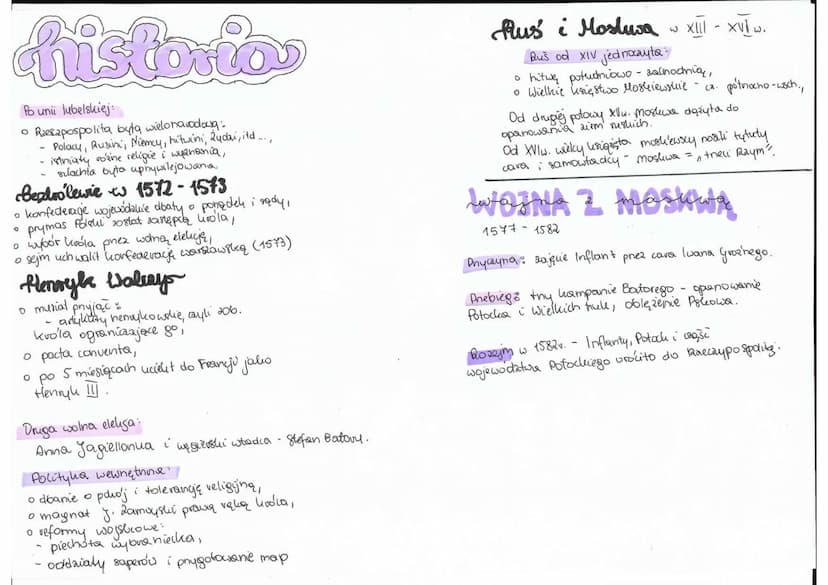 historia
Po unii lubelskiej:
o Rzeczpospolita była wielonarodowa:
- Polacy, Rusini, Niemcy, Litwini, Żydzi, itd...,
- istniały różne religie i wyznania,
- szlachta była uprzywilejowana.
Bezkrólewie w 1572 - 1573
o konfederacje wojewódzkie dbały o porządek i sądy,
o prymas Polski został zastępcą króla,
o wybór króla przez wolną elekcję,
o sejm uchwalił konfederację warszawską (1573)
Henryk Walezy
o musiał przyjąć:
- artykuły henrykowskie, czyli zob.
króla ograniczające go,
o pacta conventa,
o po 5 miesiącach uciekł do Francji jako
Henryk III.
Druga wolna elekcja:
Anna Jagiellonka i węgierski władca - Stefan Batory.
Polityka wewnętrzna:
o dbanie o pokój i tolerancję religijną,
o magnat J. Zamoyski prawą ręką króla,
o reformy wojskowe:
- piechota wybraniecka,
- oddziały saperów i przygotowane map
Ruś i Moskwa w XIII - XVI w.
Ruś od XIV jednoczyła:
o Litwę południowo - zachodnią,
o Wielkie Księstwo Moskiewskie - cz. północno-wsch.,
Od drugiej połowy XV w. Moskwa dążyła do
opanowania ziem ruskich.
Od XVI w. wielcy książęta moskiewscy nosili tytuły
cara i samowładcy - Moskwa = "trzeci Rzym".
WOJNA Z MOSKWĄ
wojna z moskwą
1577 - 1582
Przyczyna: zajęcie Inflant przez cara Iwana Groźnego.
Przebieg: trzy kampanie Batorego - opanowanie
Połocka i Wielkich Łuk, oblężenie Pskowa.
Rozejm w 1582r. - Inflanty, Połock i część
województwa Połockiego wróciło do Rzeczypospolitej.